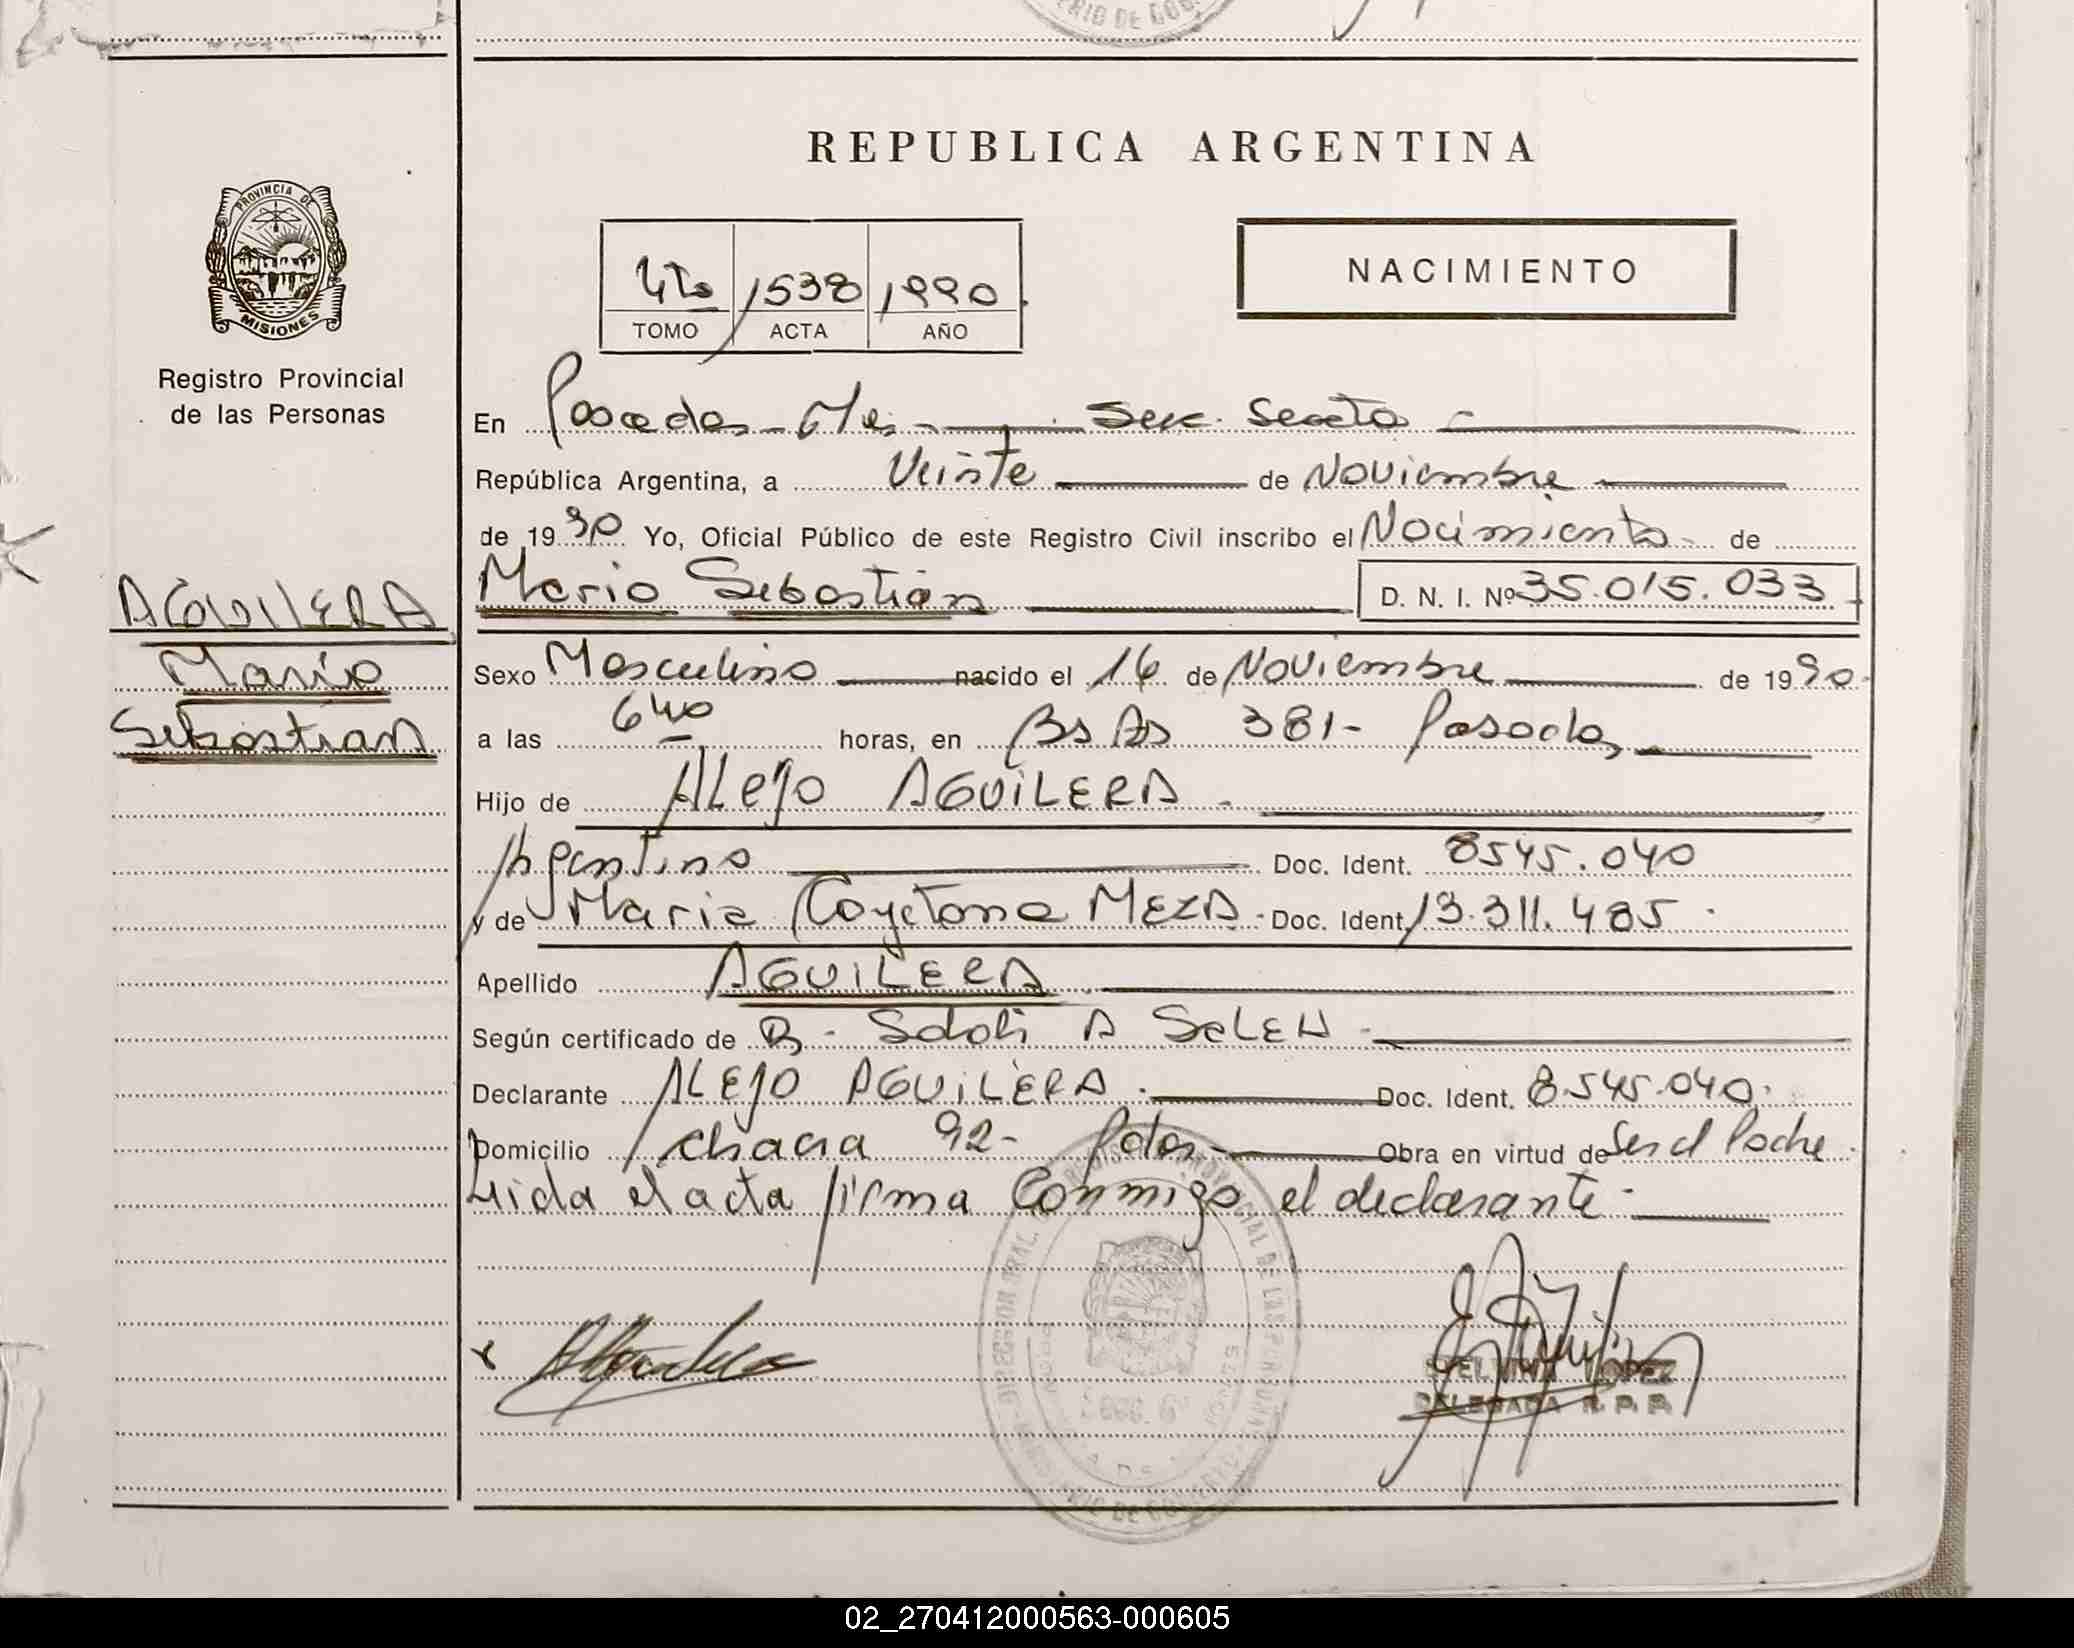 REPUBLICA ARGENTINA
PROVINCIA DE
MISIONES
Registro Provincial
de las Personas
4to 1538 1990
TOMO ACTA AÑO
NACIMIENTO
En Posadas - Mnes - Secc. Sexta
República Argentina, a Veinte de Noviembre
de 1990 Yo, Oficial Público de este Registro Civil inscribo el Nacimiento de
Mario Sebastián D. N. I. Nº 35.015.033
AGUILERA
Mario
Sebastian
Sexo Masculino nacido el 16 de Noviembre de 1990
a las 6 40 horas, en Bs As 381- Posadas
Hijo de ALEJO AGUILERA
Argentino Doc. Ident. 8545.040
y de Maria Cayetana MEZA - Doc. Ident. 13.311.485
Apellido AGUILERA
Según certificado de A
Declarante ALEJO AGUILERA Doc. Ident. 8.545.040
Domicilio Chacra 92- Pdas Obra en virtud de Ser el Padre
Leida el acta firma Conmigo el declarante
LOPEZ
DELEGADA R. P. P.
02_270412000563-000605